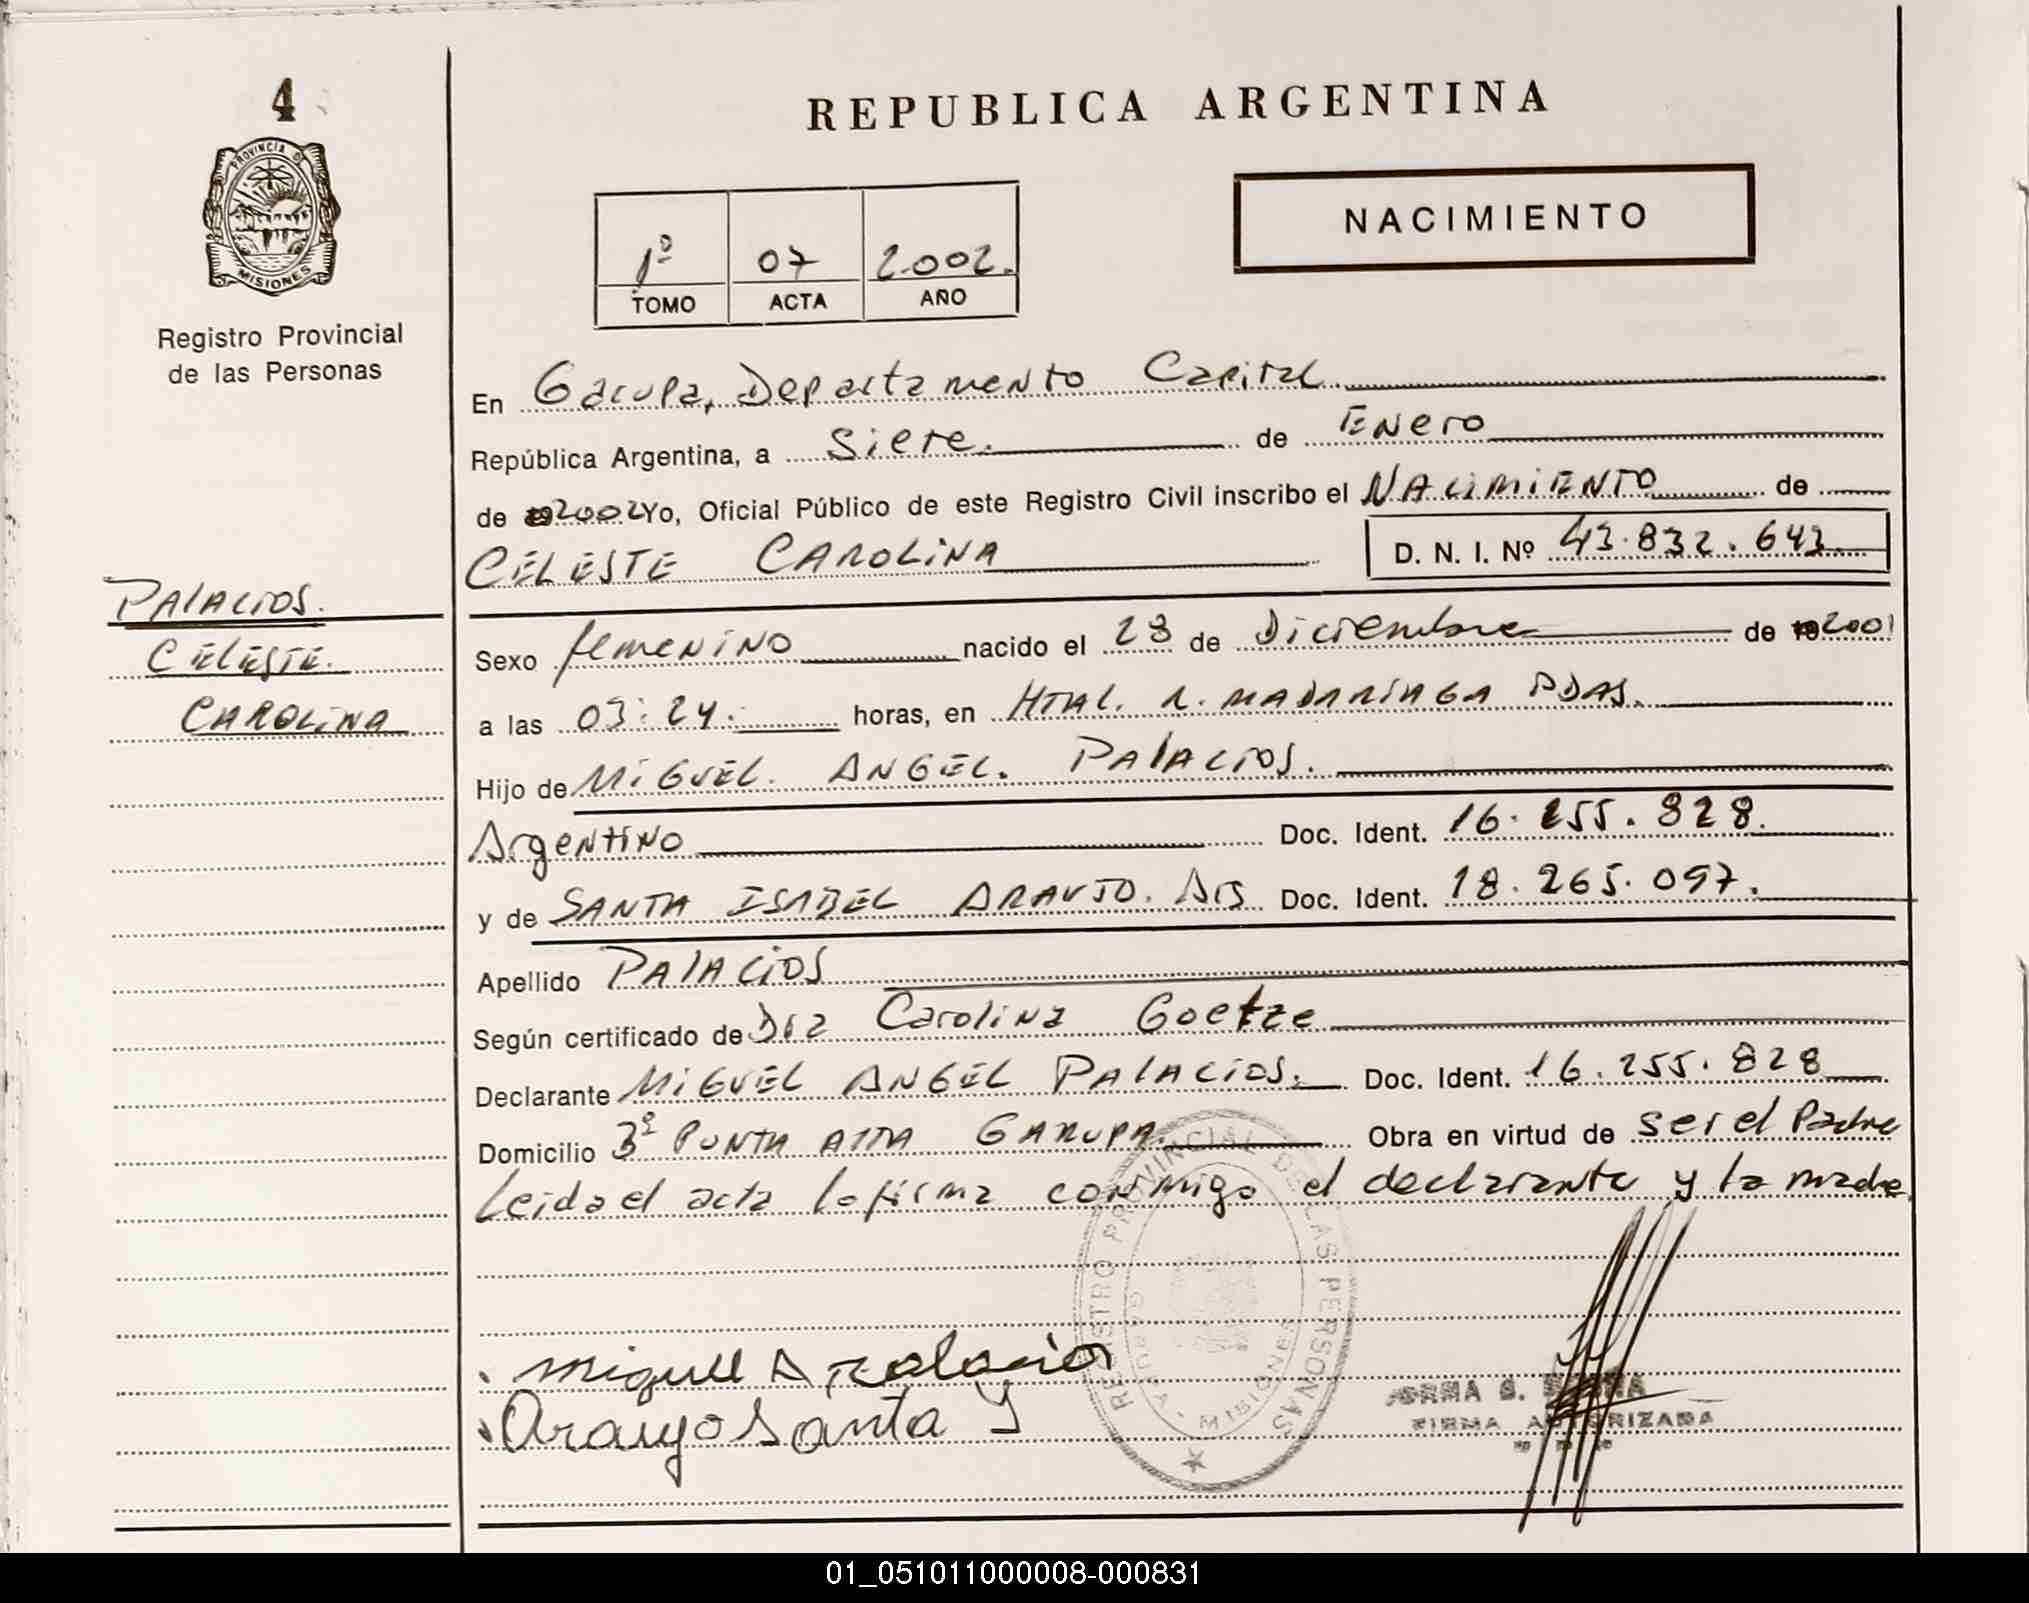 4
PROVINCIA DE
MISIONES
Registro Provincial
de las Personas
REPUBLICA ARGENTINA
NACIMIENTO
1º 07 2.002.
TOMO ACTA AÑO
En Garupa, Departamento Capital
República Argentina, a Siete. de Enero
de 2002 Yo, Oficial Público de este Registro Civil inscribo el NACIMIENTO de
CELESTE CAROLINA D. N. I. Nº 43.832.643
PALACIOS.
CELESTE.
CAROLINA
Sexo femenino nacido el 28 de Diciembre de 2001
a las 03:24. horas, en HTAL. R. MADARIAGA PDAS.
Hijo de MIGUEL. ANGEL. PALACIOS.
Argentino Doc. Ident. 16.255.828.
y de SANTA ISABEL ARAUJO. Arg Doc. Ident. 18.265.097.
Apellido PALACIOS
Según certificado de Dra Carolina Goetze
Declarante MIGUEL ANGEL PALACIOS. Doc. Ident. 16.255.828
Domicilio Bº PUNTA ALTA GARUPA. Obra en virtud de ser el Padre
Leida el acta la firma conmigo el declarante y la madre
Miguel A Palacios
Araujo Santa I
REGISTRO PROVINCIAL DE LAS PERSONAS
GARUPA - MISIONES
FIRMA AUTORIZADA
01_051011000008-000831